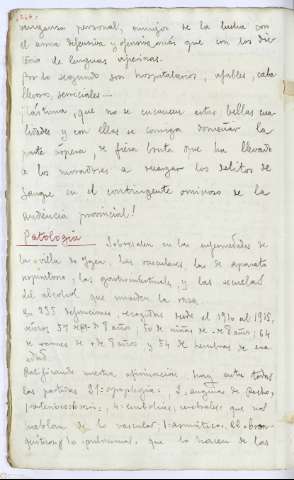 venganza personal, amigos de la lucha con
el arma defensiva y ofensiva, más que con los dic
de lenguas viperinas.
Por lo segundo son hospitalarios, afables, caba
lleros, serviciales...
¡Lástima, que no se encaucen estas bellas cua
lidades y con ellas se consiga domeñar la
parte áspera, de fiera bruta que ha llevado
a los moradores a recargar los delitos de
sangre en el contingente ominoso de la
audiencia provincial!
Patología Sobresalen en las enfermedades de
la villa de las vasculares, las de aparato
respiratorio, las gastrointestinales, y las secuelas
del alcohol que invaden la raza.
En 255 defunciones, recogidas desde el 1930 al 1935,
8 años, 50 de niñas de - de 8 años; 64
de varones de + de 8 años y 84 de hembras de esa
edad.
nuestra afirmación, hay entre todas
las partidas 21 = apoplegia; 2, anginas de pecho,
1 arterioesclerosis; 4 = embolias, cerebrales que nos
hablan de lo vascular; 1 = asmática, 22 = bron
quitis y lo pulmonar, que lo hacen de las